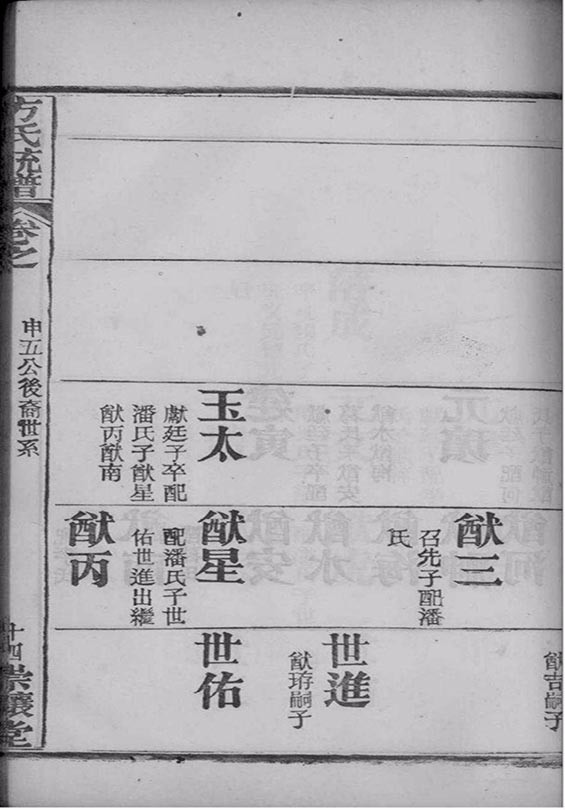 猷三
召先子配潘
氏
玉太
獻廷子卒配
潘氏子猷星
猷丙猷南
猷星
配潘氏子世
佑世進出繼
猷丙
猷吉嗣子
世進
猷珔嗣子
世佑
方氏統譜
卷之
申五公後裔世系
十四
崇讓堂